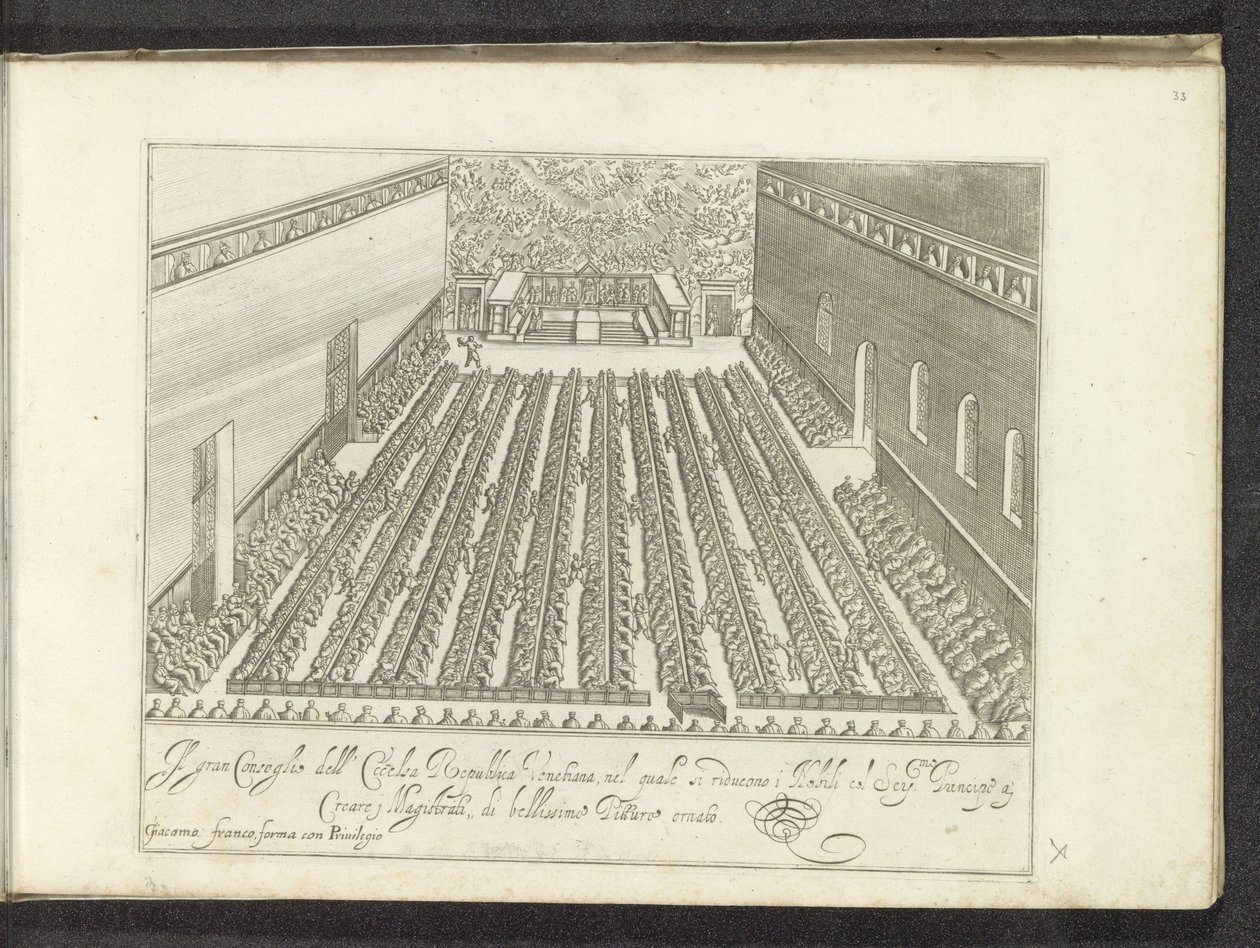 33
Il gran Conseglio dell' Eccelsa Republica Venetiana, nel quale si riducono i Nobili col Ser.^mo Prencipe a
Creare j Magistrati, di bellissime Pitture ornato.
Giacomo franco forma con Privilegio